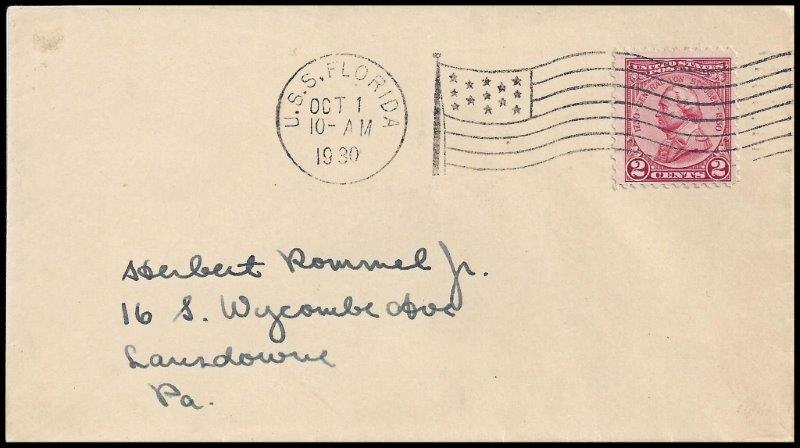 U.S.S. FLORIDA
OCT 1
10-AM
1930
UNITED STATES
POSTAGE
1730 VON STEUBEN 1930
2 CENTS 2
Herbert Rommel Jr.
16 S. Wycombe Ave
Lansdowne
Pa.